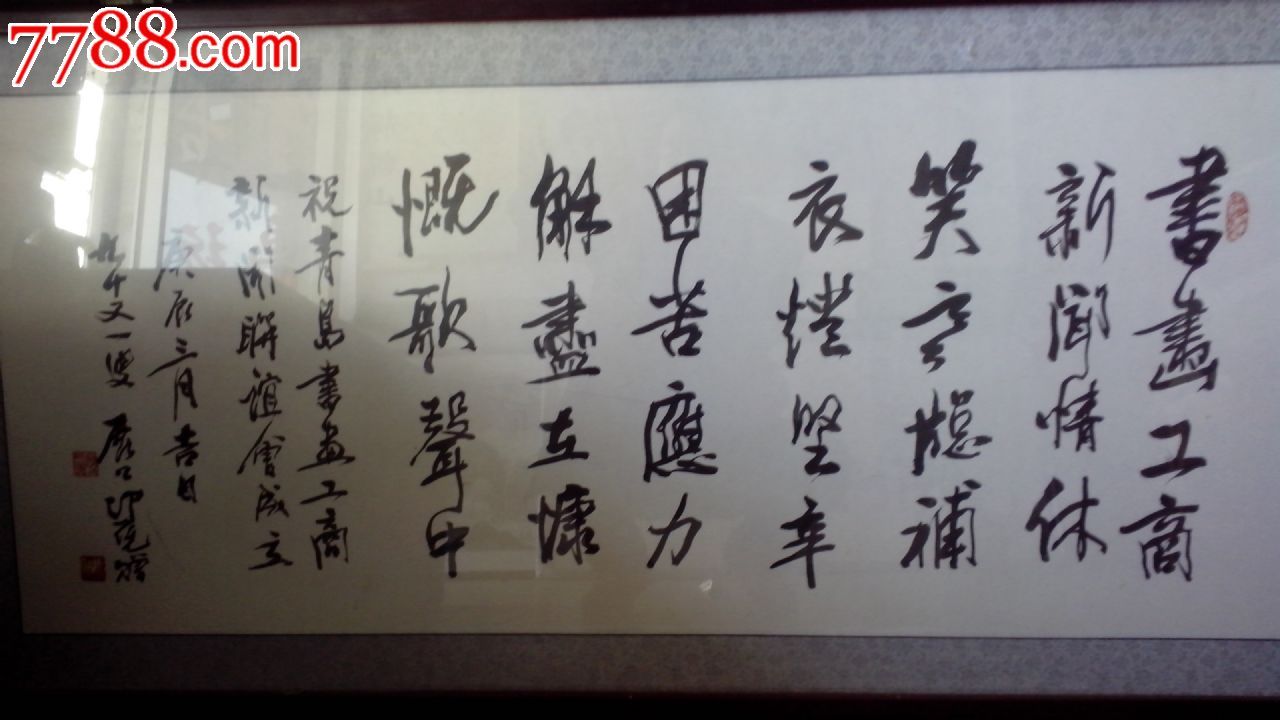 7788.com
書畫工商
新聞情休
笑言牕補
衣燈堅辛
困苦應力
解盡立慷
慨歌聲中
祝青島書畫工商
新聞聯誼會成立
庚辰三月吉日
九十又一叟